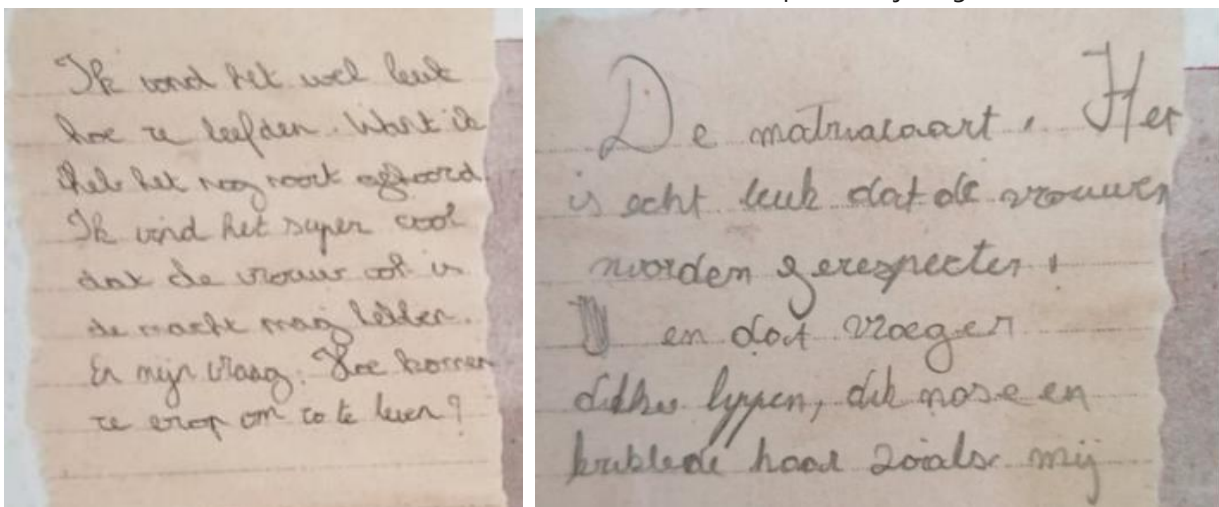 Ik vond het wel leuk
hoe ze leefden. Want ik
heb het nog nooit gehoord
Ik vind het super cool
dat de vrouw ook is
de macht mag hebben.
En mijn vraag: Hoe komen
ze erop om zo te leven?
De matriacaart. Het
is echt leuk dat de vrouwen
worden gerespecter.
en dat vroeger
dikke lyppen, dik nose en
haar zoials mij